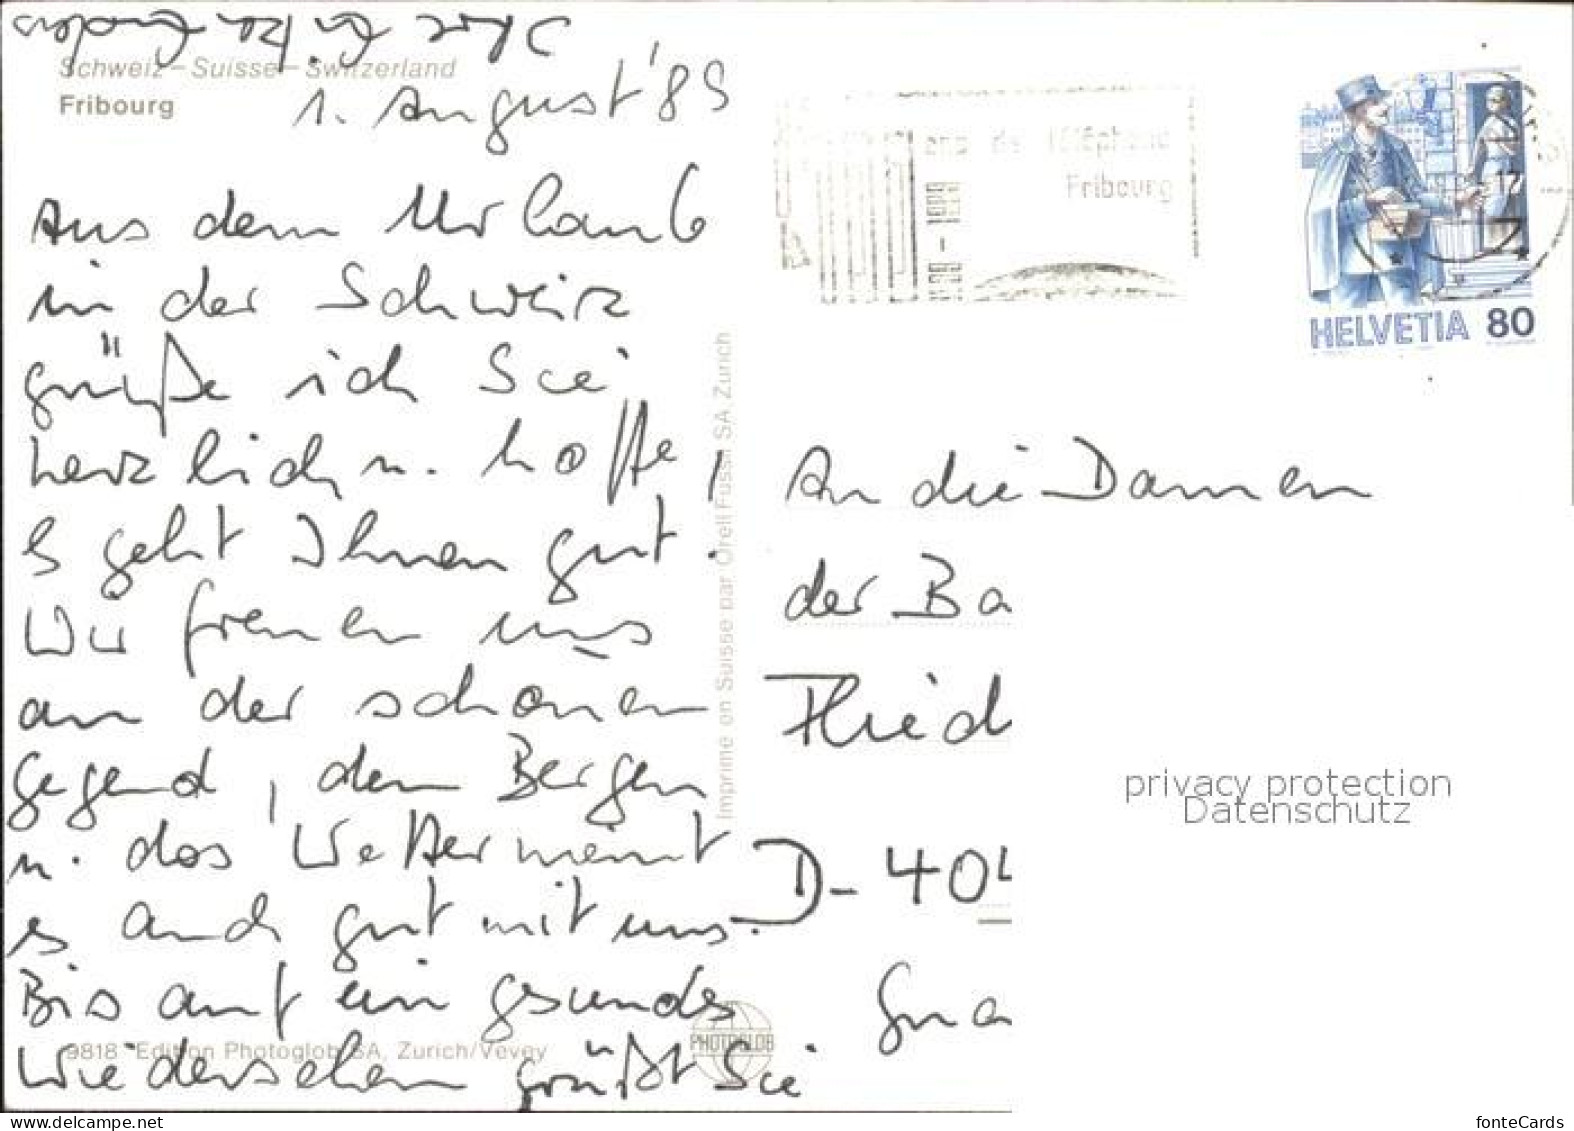 Schweiz – Suisse – Switzerland
Fribourg
1. August '89
Aus dem Urlaub
in der Schweiz
grüße ich Sie
herzlich u. hoffe,
es geht Ihnen gut.
Wir freuen uns
an der schönen
Gegend, den Bergen
u. das Wetter meint
es auch gut mit uns.
Bis auf ein gesundes
Wiedersehen grüßt Sie
9818 Edition Photoglob SA, Zurich/Vevey
PHOTOGLOB
Imprimé en Suisse par Orell Füssli SA Zurich
Téléphone
Fribourg
HELVETIA 80
An die Damen
der Ba
Flied
D-404
privacy protection
Datenschutz
fonteCards
delcampe.net